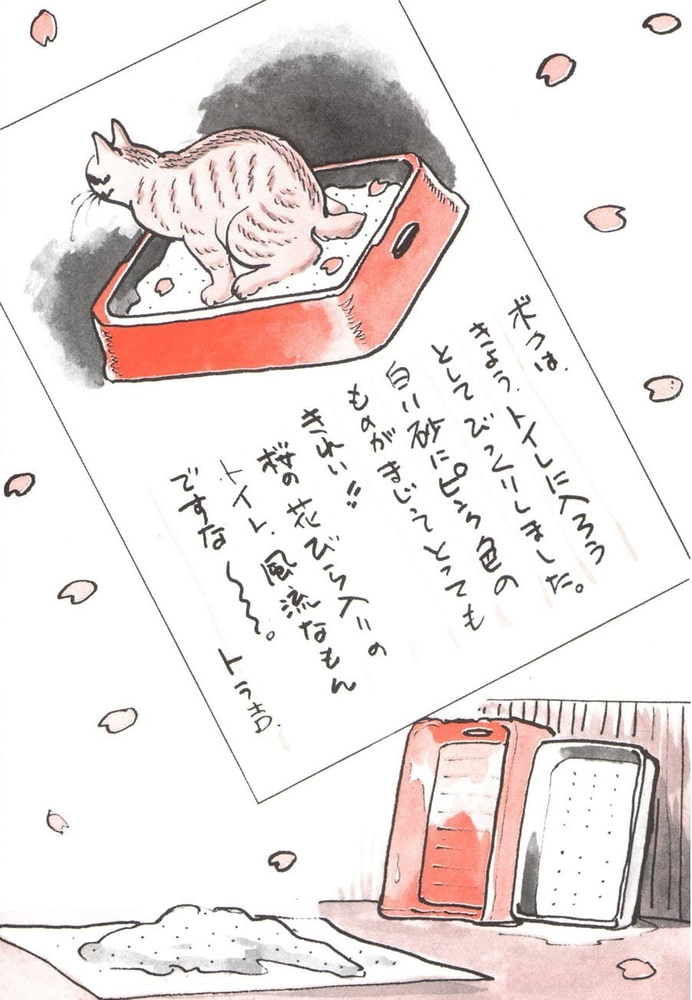 ボクは、
きょう、トイレに入ろう
としてびっくりしました。
白い砂にピンク色の
ものがまじってとっても
きれい!!
桜の花びら入りの
トイレ、風流なもん
ですな〜〜。
トラ吉.